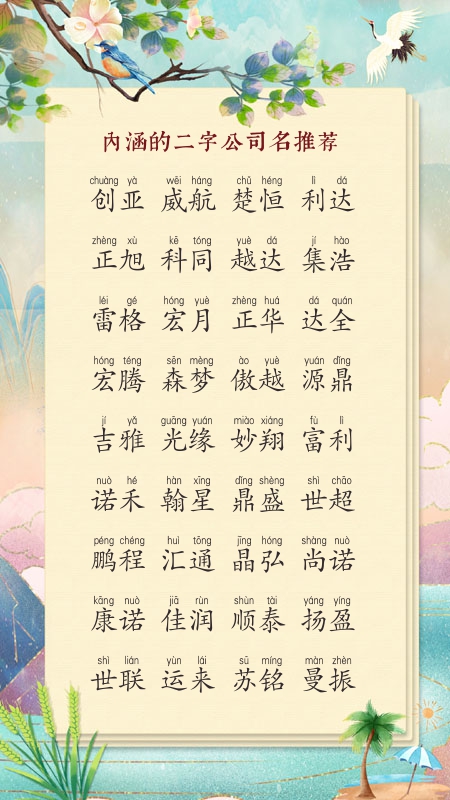 内涵的二字公司名推荐
chuàng yà wēi háng chǔ héng lì dá
创亚 威航 楚恒 利达
zhèng xù kē tóng yuè dá jí hào
正旭 科同 越达 集浩
léi gé hóng yuè zhèng huá dá quán
雷格 宏月 正华 达全
hóng téng sēn mèng ào yuè yuán dǐng
宏腾 森梦 傲越 源鼎
jí yǎ guāng yuán miào xiáng fù lì
吉雅 光缘 妙翔 富利
nuò hé hàn xīng dǐng shèng shì chāo
诺禾 翰星 鼎盛 世超
péng chéng huì tōng jīng hóng shàng nuò
鹏程 汇通 晶弘 尚诺
kāng nuò jiā rùn shùn tài yáng yíng
康诺 佳润 顺泰 扬盈
shì lián yùn lái sū míng màn zhèn
世联 运来 苏铭 曼振